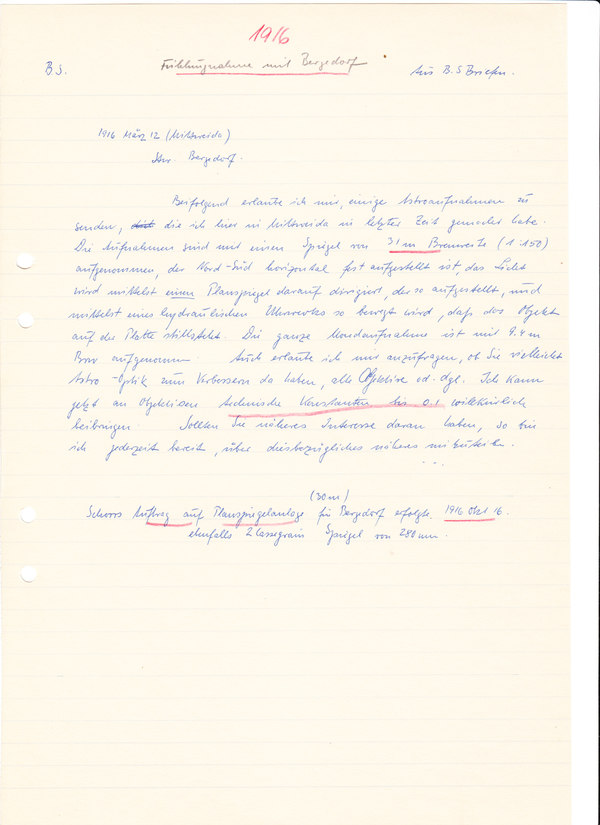 1916
B.S. Fühlungnahme mit Bergedorf Aus B.S Briefen.
1916 März 12 (Mittweida)
Stw. Bergedorf.
Beifolgend erlaube ich mir, einige Astroaufnahmen zu
senden, die ich hier in Mittweida in letzter Zeit gemacht habe.
Die Aufnahmen sind mit einem Spiegel von 31 m Brennweite (1:150)
aufgenommen, der Nord-Süd horizontal fest aufgestellt ist, das Licht
wird mittelst einen Planspiegel darauf dirigiert, der so aufgestellt, und
mittelst eines hydraulischen Uhrwerkes so bewegt wird, daß das Objekt
auf der Platte stillsteht. Die ganze Mondaufnahme ist mit 9.4 m
Brw aufgenommen Auch erlaube ich mir anzufragen, ob Sie vielleicht
Astro-Optik zum Verbessern da haben, alte Objektive od. dgl. Ich kann
jetzt an Objektiven technische Konstanten bis 0.1 willkürlich
beibringen. Sollten Sie näheres Interesse daran haben, so bin
ich jederzeit bereit, über diesbezügliches näheres mitzuteilen.
...
(30m)
Schorrs Auftrag auf Planspiegelanlage für Bergedorf erfolgte 1916 Okt 16.
ebenfalls 2 Cassegrain Spiegel von 280 mm.